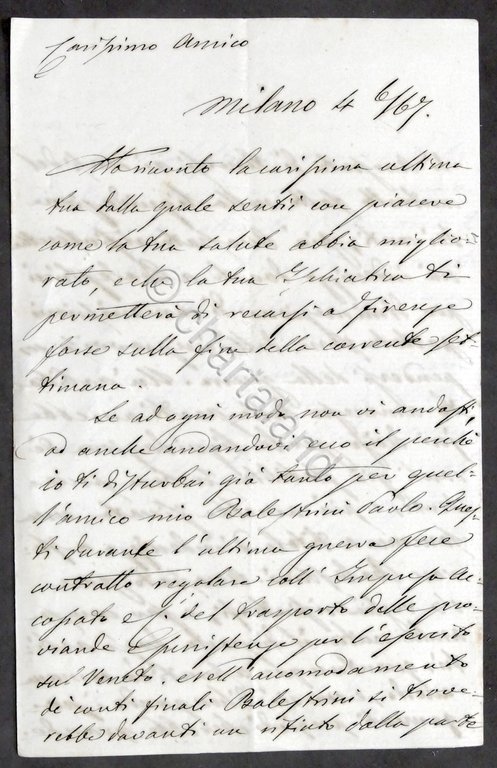 Carissimo Amico
Milano 4 6/67.
Ho ricevuto la carissima ultima
tua dalla quale sentii con piacere
come la tua salute abbia miglio-
rato, e che la tua Ischiatica ti
permetterà di recarsi a Firenze
forse sulla fine della corrente set-
timana.
Se ad ogni modo non vi andasti,
od anche andandovi ecco il perchè
io ti disturbai già tanto per quel-
l'amico mio Balestrini Paolo. Ques-
ti durante l'ultima guerra fece
contratto regolare coll' Impresa
e C. del trasporto delle pro-
viande e sussistenze per l'esercito
sul Veneto. Nell' accomodamento
di conti finali Balestrini si trove-
rebbe davanti un rifiuto dalla parte
© chartaland